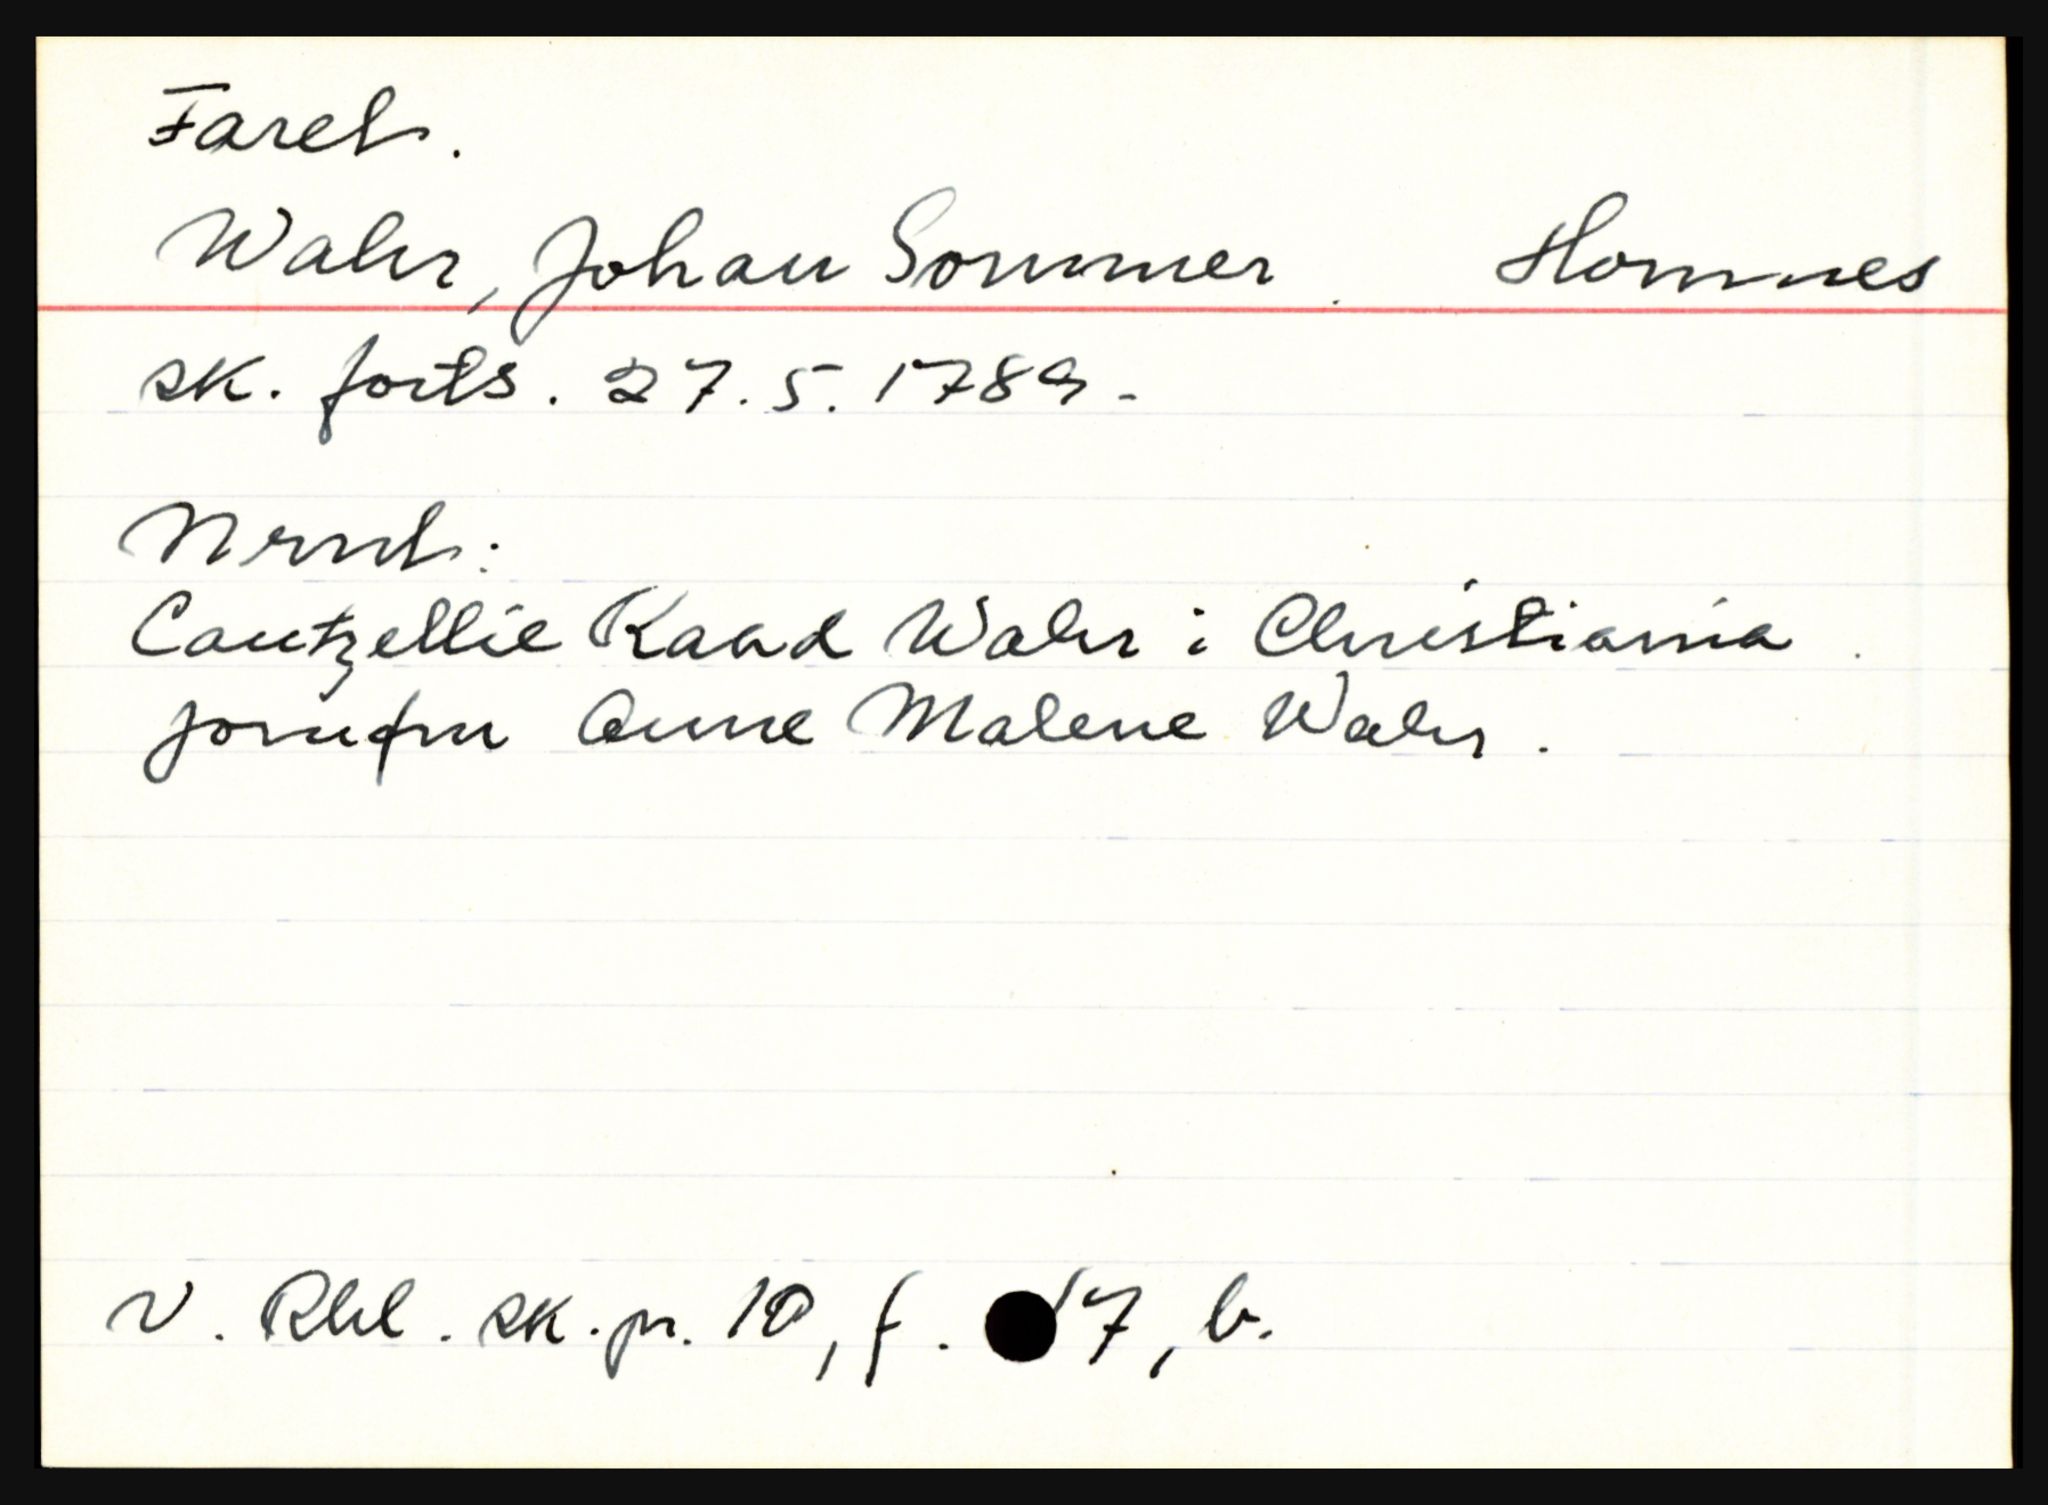 Fareh.
Wahr, Johan Sommer. Homnes
sk. forts. 27.5.1789.
Mrnh:
Cantzellie Raad Wahr i Christiania.
jomfru Anne Malene Wahr.
V. Rbl. sk. pr. 10, f. 17, b.